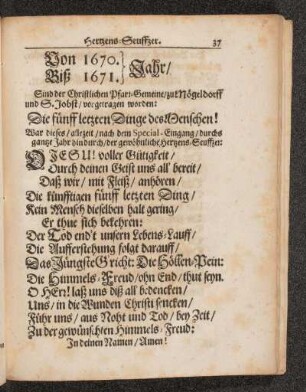 Hertzens-Seuffzer. 37
Von 1670.
Biß 1671. } Jahr/
Sind der Christlichen Pfarr-Gemeine/ zu Mögeldorff
und S. Jobst/ vorgetragen worden:
Die fünff letzten Dinge des Menschen!
War dieses/ allezeit/ nach dem Special-Eingang/ durchs
gantze Jahr hindurch/ der gewöhnliche Hertzens-Seuffzer:
O JESU! voller Gütigkeit/
Durch deinen Geist uns all' bereit/
Daß wir/ mit Fleiß/ anhören/
Die künfftigen fünff letzten Ding/
Kein Mensch dieselben halt gering/
Er thue sich bekehren:
Der Tod end't unsern Lebens-Lauff/
Die Aufferstehung folgt darauff/
Das Jüngste Gricht: Die Höllen-Pein:
Die Himmels-Freud/ ohn End/ thut seyn.
O HErr! laß uns diß all bedencken/
Uns/ in die Wunden Christi sencken/
Führ uns/ aus Noht und Tod/ bey Zeit/
Zu der gewünschten Himmels-Freud:
In deinen Namen/ Amen!